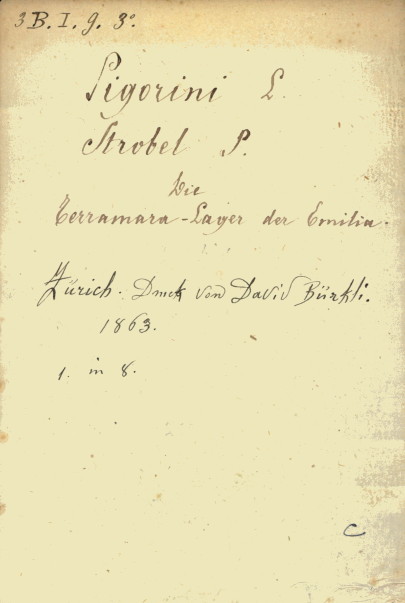 3 B. I. 9. 3º.
Pigorini L.
Strobel P.
Die
Terramara-Lager der Emilia.
Zürich. Druck von David Bürkli.
1863.
1. in 8.
C